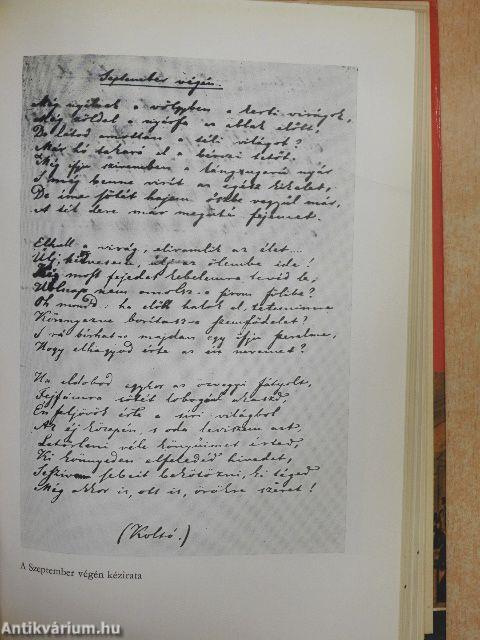 September végén.
Még nyilnak a völgyben a kerti virágok,
Még zöldel a nyárfa az ablak előtt,
De látod amottan a téli világot?
Már hó takará el a bérczi tetőt.
Még ifju szivemben a lángsugarú nyár
S még benne virít az egész kikelet,
De íme sötét hajam őszbe vegyül már,
A tél dere már megüté fejemet.
Elhull a virág, eliramlik az élet...
Ülj, hitvesem, ülj az ölembe ide!
Ki most fejedet kebelemre tevéd le,
Holnap nem omolsz-e sírom fölibe?
Oh mondd: ha előbb halok el, tetemimre
Könnyezve borítasz-e szemfödelet?
S rá bírhat-e majdan egy ifju szerelme,
Hogy elhagyod érte az én nevemet?
Ha eldobod egykor az özvegyi fátyolt,
Fejfámra sötét lobogóul akaszd,
Én feljövök érte a síri világból
Az éj közepén s oda leviszem azt,
Letörleni véle könyűimet érted,
Ki könnyeden elfeledéd hivedet,
S e szív sebeit bekötözni, ki téged
Még akkor is, ott is, örökre szeret!
(Koltó.)
A Szeptember végén kézirata
Antikvárium.hu